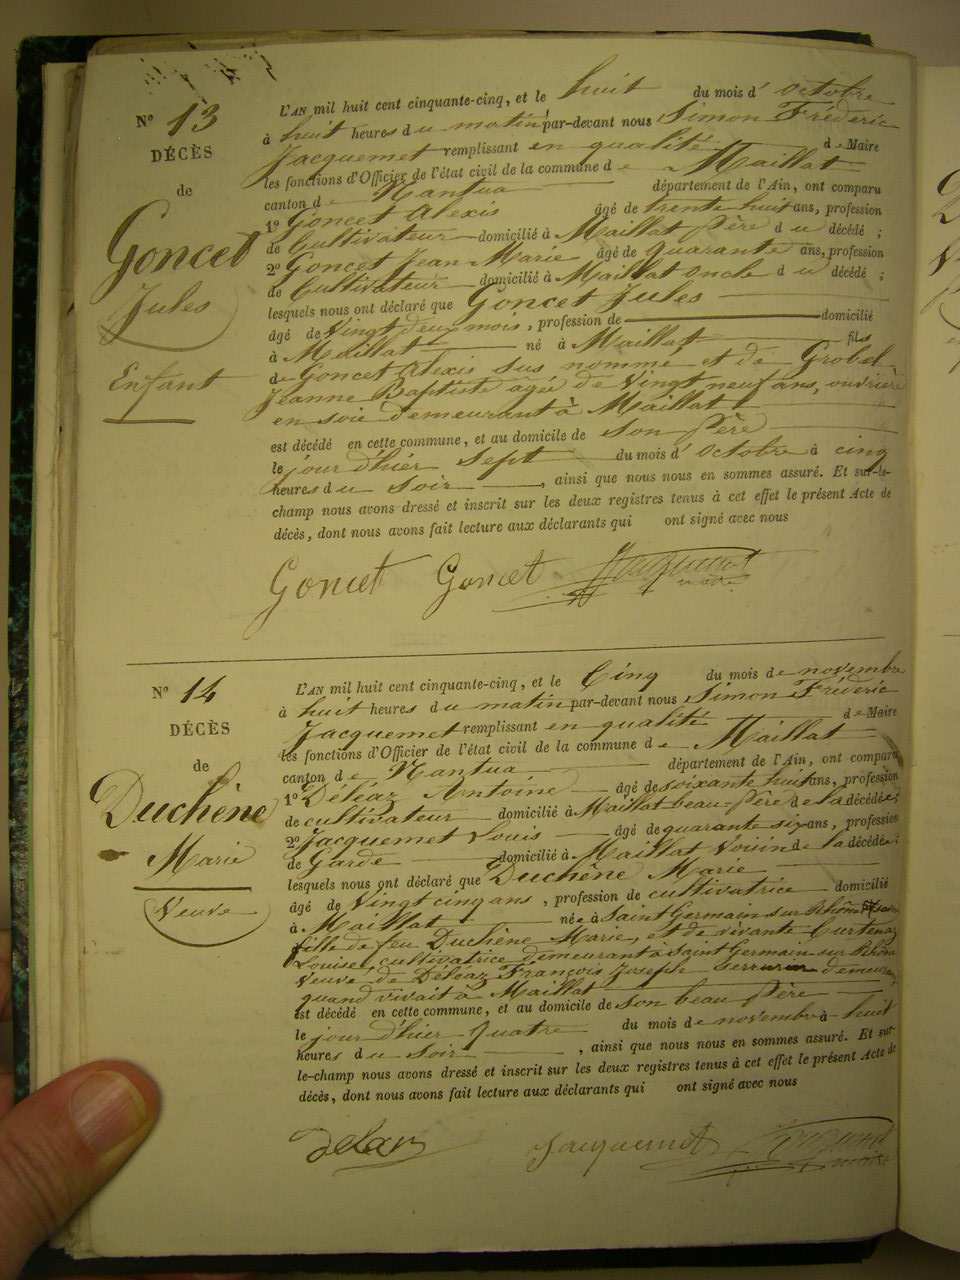 Nº 13
DÉCÈS
de
Goncet
Jules
Enfant
L'AN mil huit cent cinquante-cinq, et le huit du mois d' Octobre
à huit heures du matin par-devant nous Simon Fréderic
Jacquemet remplissant en qualité de Maire
les fonctions d'Officier de l'état civil de la commune de Maillat
canton de Nantua département de l'Ain, ont comparu
1º Goncet Alexis âgé de trente huit ans, profession
de Cultivateur domicilié à Maillat Père du décédé ;
2º Goncet Jean Marie âgé de quarante ans, profession
de Cultivateur domicilié à Maillat oncle du décédé ;
lesquels nous ont déclaré que Goncet Jules
âgé de Vingt deux mois, profession de domicilié
à Maillat né à Maillat fils
de Goncet Alexis sus nommé et de Grobel
Jeanne Baptiste agée de Vingt neuf ans, ouvrière
en soie demeurant à Maillat
est décédé en cette commune, et au domicile de son Père
le jour d'hier sept du mois d' Octobre à cinq
heures du soir , ainsi que nous nous en sommes assuré. Et sur-le-
champ nous avons dressé et inscrit sur les deux registres tenus à cet effet le présent Acte de
décès, dont nous avons fait lecture aux déclarants qui ont signé avec nous
Goncet Goncet Jacquemet
maire
Nº 14
DÉCÈS
de
Duchêne
Marie
Veuve
L'AN mil huit cent cinquante-cinq, et le Cinq du mois de novembre
à huit heures du matin par-devant nous Simon Fréderic
Jacquemet remplissant en qualité de Maire
les fonctions d'Officier de l'état civil de la commune de Maillat
canton de Nantua département de l'Ain, ont comparu
1º Déléaz Antoine âgé de soixante huit ans, profession
de cultivateur domicilié à Maillat beau-Père de la décédée ;
2º Jacquemet Louis âgé de quarante six ans, profession
de Garde domicilié à Maillat Voisin de la décédée ;
lesquels nous ont déclaré que Duchêne Marie
âgé de Vingt cinq ans , profession de cultivatrice domicilié
à Maillat née à Saint Germain sur Rhône
fille de feu Duchêne Marie, et de vivante Curtenaz
Louise, cultivatrice demeurant à Saint Germain sur Rhône
Veuve de Déléaz François Joseph serrurier demeurant
quand vivait à Maillat
est décédé en cette commune, et au domicile de son beau Père
le jour d'hier quatre du mois de novembre à huit
heures du soir , ainsi que nous nous en sommes assuré. Et sur-
le-champ nous avons dressé et inscrit sur les deux registres tenus à cet effet le présent Acte de
décès, dont nous avons fait lecture aux déclarants qui ont signé avec nous
Jacquemet Jacquemet
maire